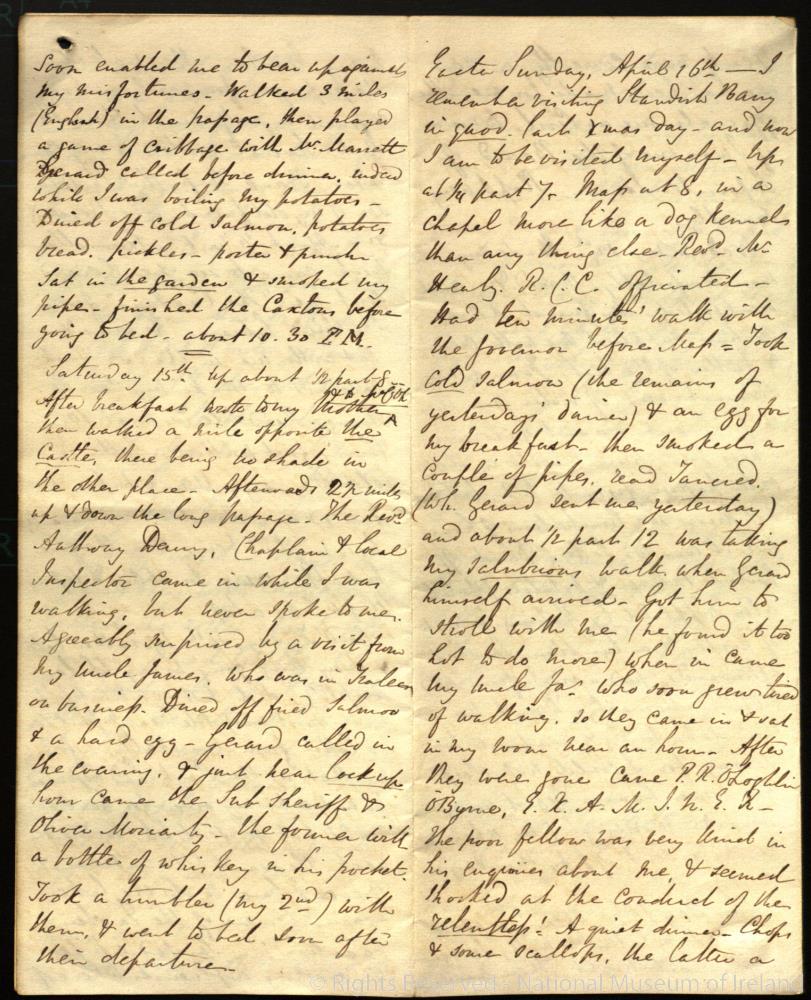 Soon enabled me to bear up against
my misfortunes - Walked 3 miles
(English) in the passage, then played
a game of Cribbage with Mr. Marrett
Gerard called before dinner, indeed
while I was boiling my potatoes -
Dined off cold Salmon, potatoes
bread, pickles - porter & punch
Sat in the garden & smoked my
pipe - finished the Caxtons before
going to bed - about 10.30 P.M.
Saturday 15th up about 1/2 past 8 -
After breakfast wrote to my Mother
then walked a mile opposite the
Castle, there being no shade in
the other place - Afterwards 2 1/2 miles
up & down the long passage - The Revd
Anthony Denny, Chaplain & local
Inspector came in while I was
walking, but never spoke to me.
Agreeably surprised by a visit from
my uncle James, who was in Tralee
on business. Dined off fried Salmon
& a hard egg - Gerard called in
the evening, & just near lock up
hour came the Sub Sheriff &
Oliver Moriarty - the former with
a bottle of whiskey in his pocket.
Took a tumbler (my 2nd) with
them, & went to bed soon after
their departure -
Easter Sunday, April 16th - I
remember visiting Standish Barry
in quod last Xmas day - and now
I am to be visited myself - Up
at 1/4 past 7 - Mass at 8, in a
chapel more like a dog kennel
than any thing else - Revd. Mr
Healy. R.C.C. officiated -
Had ten minutes' walk with
the Governor before Mass = Took
cold Salmon (the remains of
yesterday's dinner) & an egg for
my breakfast - then smoked a
couple of pipes, read Tancred,
(wh. Gerard sent me yesterday)
and about 1/2 past 12 was taking
my salubrious walk when Gerard
himself arrived - Got him to
stroll with me (he found it too
hot to do more) when in came
my uncle Jas. who soon grew tired
of walking, so they came in & sat
in my room near an hour - After
they were gone came P. R. O'Loghlin
O'Byrne,
The poor fellow was very kind in
his enquiries about me, & seemed
shocked at the conduct of the
relentless! A quiet dinner - Chops
& some scallops, the latter a
© Rights Reserved - National Museum of Ireland